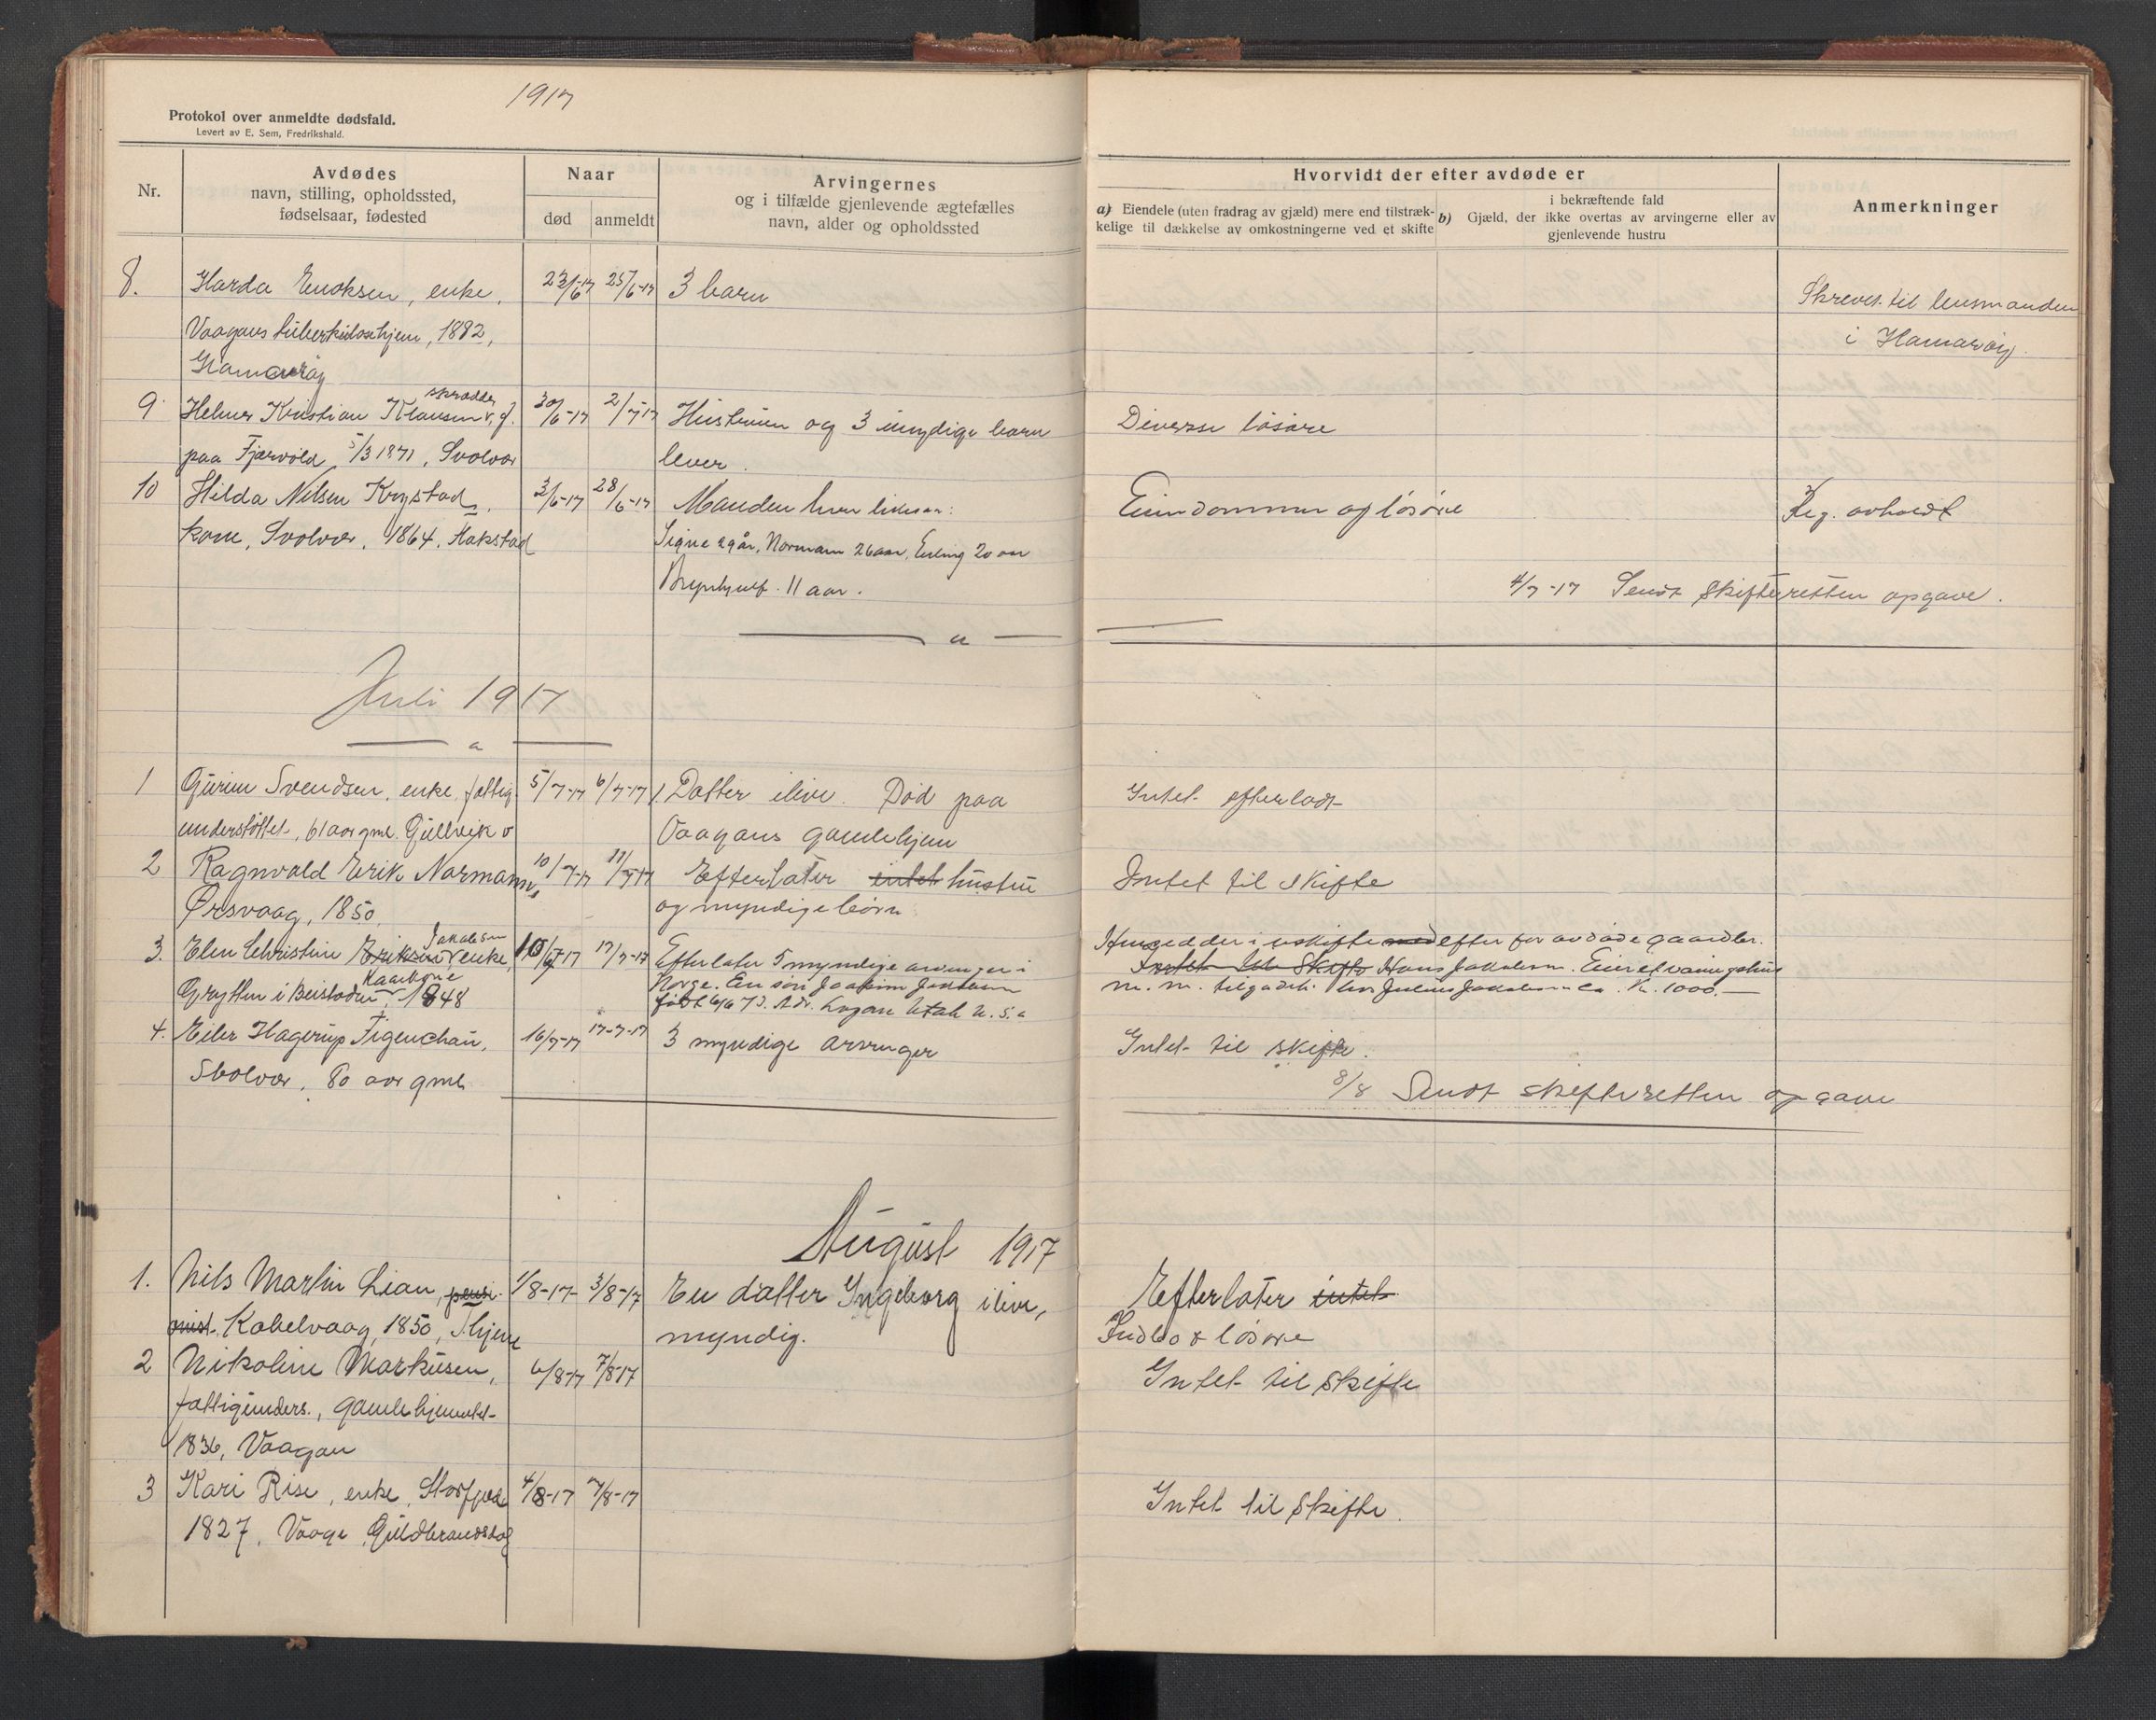 1917
Protokol over anmeldte dødsfald.
Levert av E. Sem, Fredrikshald.
Nr.
Avdødes
navn, stilling, opholdssted,
fødselsaar, fødested
Naar
død
anmeldt
Arvingernes
og i tilfælde gjenlevende ægtefælles
navn, alder og opholdssted
Hvorvidt der efter avdøde er
a) Eiendele (uten fradrag av gjæld) mere end tilstræk-
kelige til dækkelse av omkostningerne ved et skifte
i bekræftende fald
b) Gjæld, der ikke overtas av arvingerne eller av
gjenlevende hustru
Anmerkninger
8. Harda Enoksen, enke, 23/6-17 25/6-17 3 barn
Skrevet til lensmanden
Vaagans tuberkulosehjem, 1882,
i Hamarøy.
Hamarøy
skrædder
9 Helmer Kristian Klausen v, g. 30/6-17 2/7-17 Hustruen og 3 umyndige barn Diverse løsøre
paa Fjærvold 5/3 1871, Svolvær lever.
10 Hilda Nilsen Krystad, 3/6-17 28/6-17 Manden lever likesaa: Eiendommer og løsøre Reg. avholdt
kone, Svolvær, 1864, Hakstad Signe 29 år, Normann 26 aar, Erling 20 aar
Brynhjulf. 11 aar.
4/7-17 Sendt skifteretten opgave.
Juli 1917
1 Gurine Svendsen, enke, fattig 5/7-17 6/7-17 1 Datter ilive. Død paa Intet efterladt
understøttet, 61 aar gml. Gullvik v Vaagans gamlehjem
2 Ragnvald Erik Normann, 10/7-17 11/7-17 Efterlater intet hustru Intet til skifte
Ørsvaag, 1850. og myndige børn
Jakobsen
3. Elen Christine Eriksen enke, 10/7-17 17/7-17 Efterlater 5 myndige arvinger i Hensedder i uskifte med efter før avdøde gaardbr.
Kaarbøne
Grytten i 1848 Norge. En søn Joakim Jakobsen Intet til skifte Hans Jakobsen. Eier et vaaningshus
født 6/6 73. Adr. Logan Utah U.S.a m. m. tilgodeh. hos Julius Jakobsen ca. K. 1000.—
4. Eiler Hagerup Figenchau, 16/7-17 17-7-17 3 myndige arvinger Intet til skifte.
Svolvær, 80 aar gml.
8/8 Sendt skifteretten opgave
August 1917
1. Nils Martin Lian, pensi- 1/8-17 3/8-17 En datter Ingeborg ilive, Efterlater intet
onist. Kabelvaag, 1850, myndig. Indbo & løsøre
2 Nikoline Markusen, 6/8-17 7/8-17 Intet til skifte
fattigunders., gamlehjemmet
1836, Vaagan
3 Kari Rise, enke, Storfjord 4/8-17 7/8-17 Intet til skifte.
1827, Vaage Guldbrandsdal